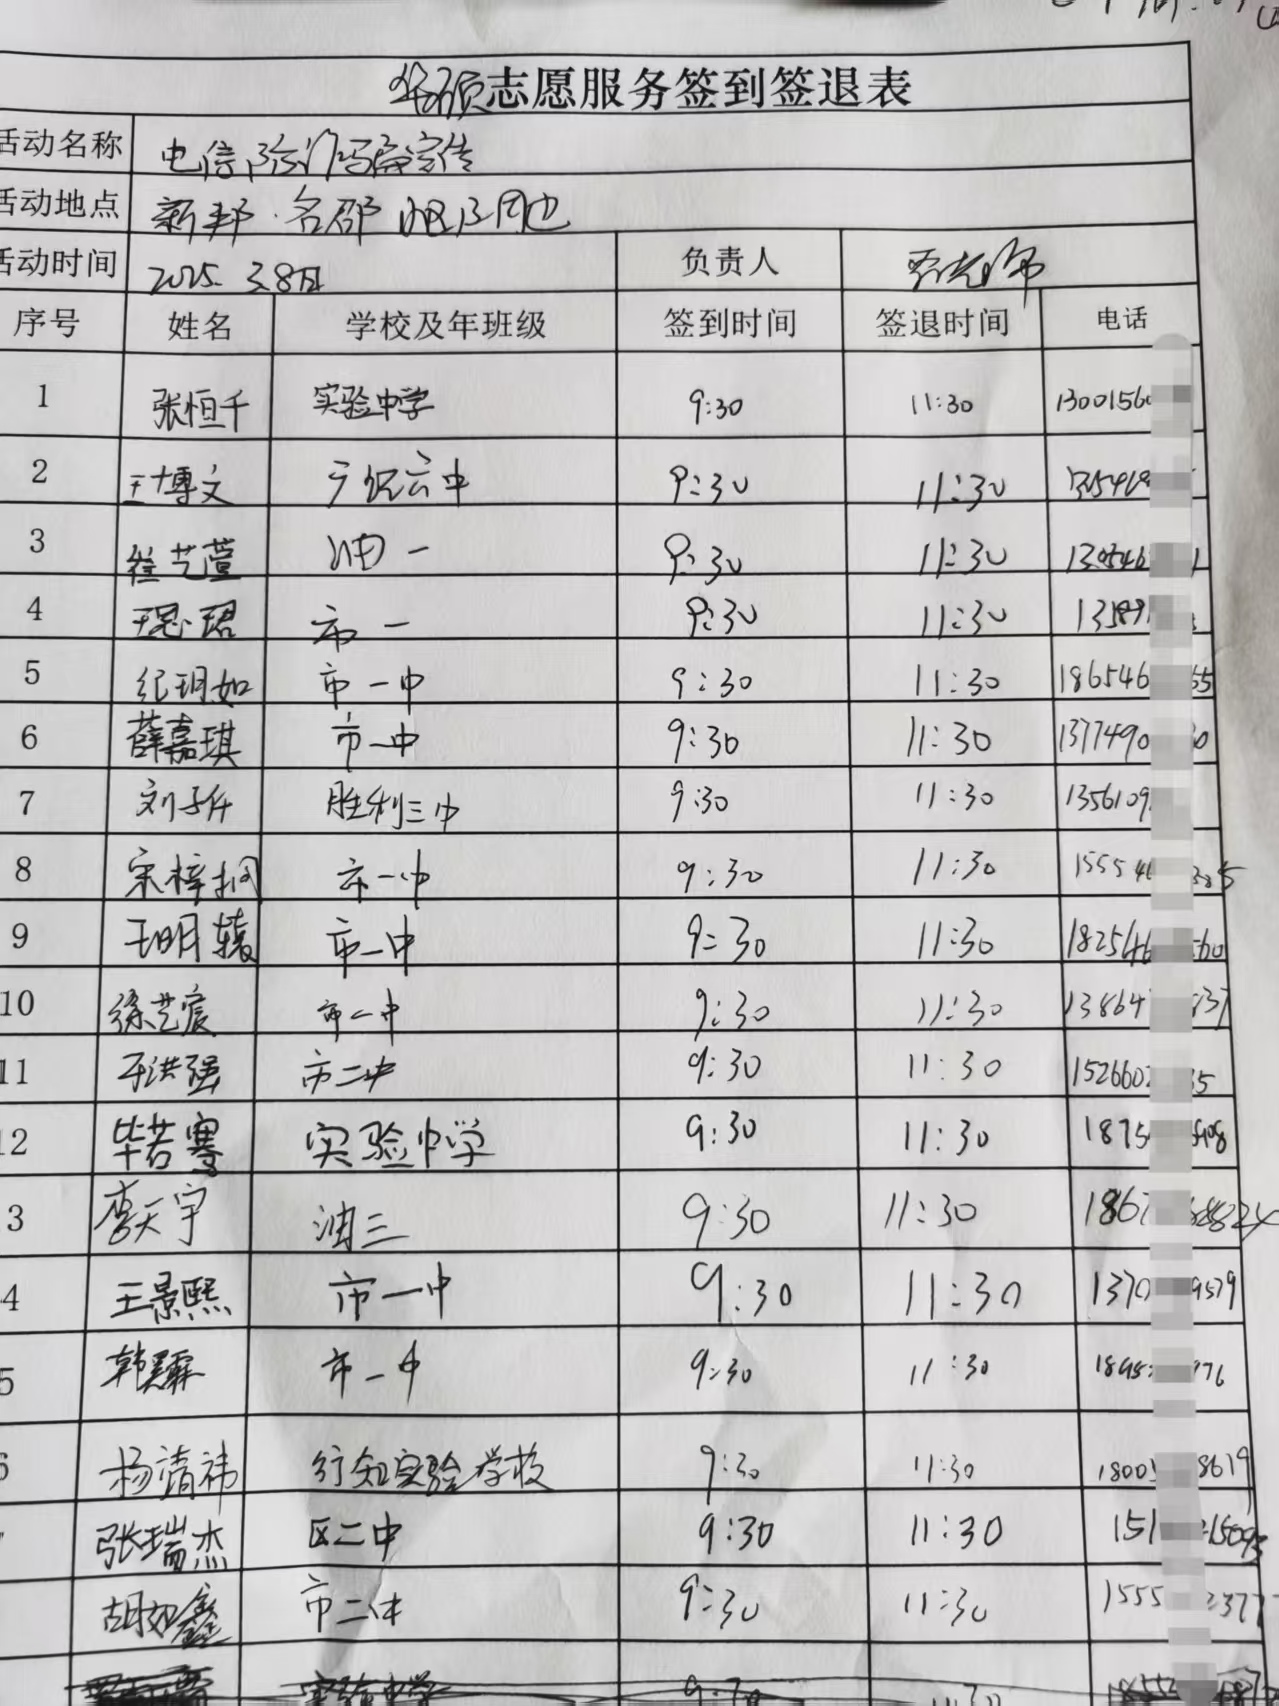 志愿服务签到签退表
活动名称 电信诈骗宣传
活动地点 新邦·名邵
活动时间 2025.3.8日 负责人 老师
序号 姓名 学校及年班级 签到时间 签退时间 电话
1 张恒千 实验中学 9:30 11:30 13001560
2 王博文 六中 9:30 11:30
3 崔艺萱 油一 9:30 11:30
4 珺 市一 9:30 11:30
5 纪玥如 市一中 9:30 11:30 186546 55
6 薛嘉琪 市一中 9:30 11:30 1377490 0
7 刘子 胜利三中 9:30 11:30 1356109
8 宋梓桐 市一中 9:30 11:30 1555
9 王明 市一中 9:30 11:30 182546 560
10 徐艺宸 市一中 9:30 11:30 13864 837
11 于洪强 市二中 9:30 11:30 1526602 5
12 毕若骞 实验中学 9:30 11:30 1875
3 李天宇 油三 9:30 11:30 1867
4 王景熙 市一中 9:30 11:30 1370 9579
5 韩霖 市一中 9:30 11:30 76
6 杨清祎 行知实验学校 9:30 11:30 1800 8619
张瑞杰 区二中 9:30 11:30 151
胡如鑫 市二中 9:30 11:30 1555 2377
实验中学